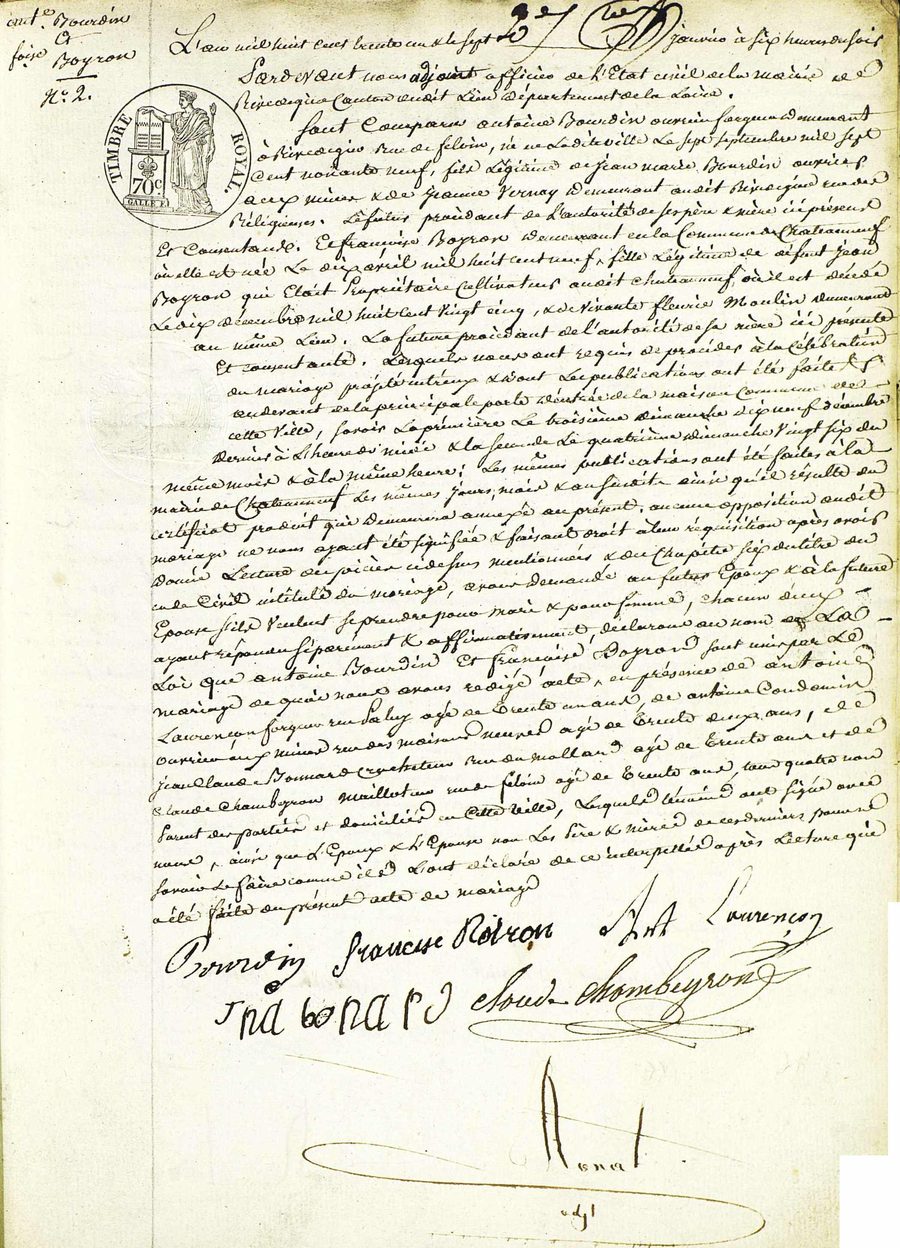 antne. Bourdin
et
foise Boyron
No. 2.
TIMBRE ROYAL.
70c.
L'an mil huit cent trente un & le sept janvier à six heures du soir
Pardevant nous adjoint officier de l'Etat civil de la mairie de
Rivedegier Canton dudit Lieu Département de la Loire.
Sont Comparu antoine Bourdin ouvrier forgeur demeurant
à Rivedegier Rue de feloin, né en Ladite ville Le sept septembre mil sept
Cent nonante neuf, fils Légitime de jean marie Bourdin ouvrier
aux mines & de jeanne Vernay Demeurant audit Rivedegier rue des
Réligieuses. Le futur procédant de L'autorité de ses père & mère ici présens
Et Consentans. Et françoise Boyron demeurant en la Commune de Chateauneuf
où elle est née Le dix avril mil huit cent neuf, fille Légitime de défunt jean
Boyron qui Etait Propriétaire Cultivateur audit chateauneuf, où il est décédé
Le dix décembre mil huit cent vingt cinq, & de vivante fleurie Moulin demeurant
au même Lieu. La future procédant de l'autorité de sa mère ici présente
Et consentante. Lesquels nous ont requis de procéder à la célébration
du mariage projeté entr'eux & dont Les publications ont été faites
au devant de la principale porte d'entrée de la maison Commune de
cette ville, savoir La première Le troisième dimanche dix neuf décembre
dernier à L'heure de midi & la seconde Le quatrième dimanche vingt six du
même mois & à la même heure; Les mêmes publications ont été faites à la
mairie de Chateauneuf Les mêmes jours, mois & an susdits ainsi qu'il résulte du
certificat produit qui demeurera annexé au présent. aucune opposition audit
mariage ne nous ayant été signifiée & faisant droit à leur réquisition après avoir
donné Lecture des pièces ci dessus mentionnées & du Chapitre six du titre du
code Civil intitulé du mariage, avons demandé au futur Epoux & à la future
Epouse s'ils veulent se prendre pour mari & pour femme, chacun d'eux
ayant répondu séparément & affirmativement, déclarons au nom de La
Loi que antoine Bourdin Et françoise Boyron sont unis par Le
mariage de quoi nous avons rédigé acte, en présence de antoine
Laurençon forgeur rue Paluy agé de trente un ans, de antoine Condamin
ouvrier aux mines rue des maisons neuves agé de trente deux ans, de
jean Claude Bonnard crocheteur Rue du Mollard agé de trente ans et de
Claude Chambeyron maillot rue de feloin agé de trente ans, tous quatre non
parent des parties et domiciliés en Cette ville, Lesquels témoins ont signé avec
nous, ainsi que L'Epoux & L'Epouse non Les père & mères de ces derniers pour ne
savoir Le faire comme ils L'ont déclaré de ce interpellés après Lecture qui
a été faite du présent acte de mariage
Bourdin francise Roiron Ant Laurençon
Jna bonard Claude Chambeyron
adjt